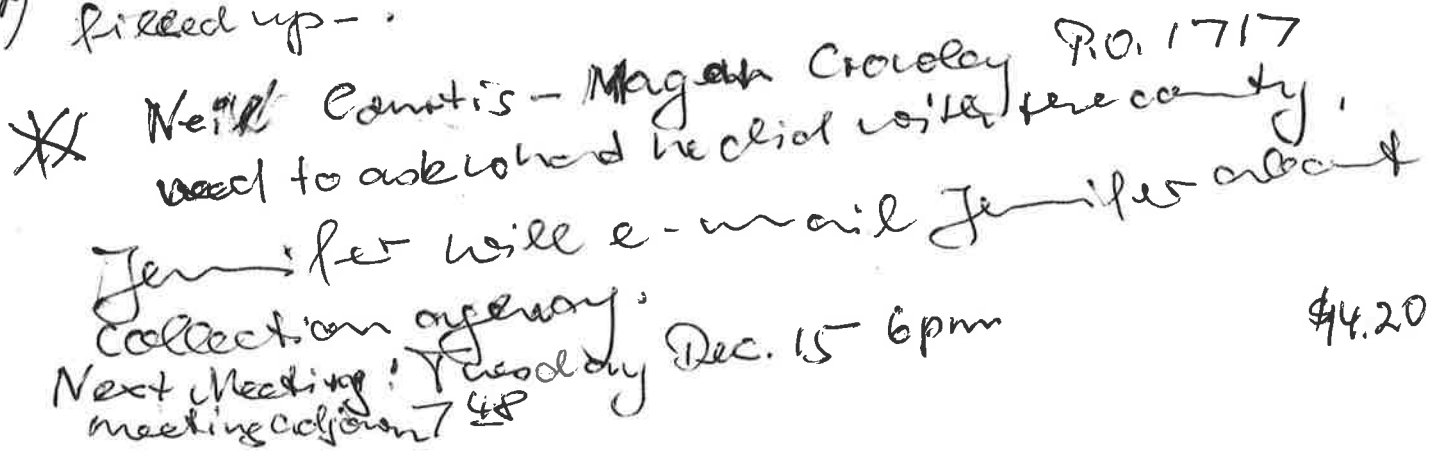 ) filled up-.
Neil Courtis - Magan Crowley P.O. 1717
need to ask whard he did with the county.
Jennifer will e-mail Jennifer about
collection agency.
Next Meeting: Tuesday Dec. 15 6pm
$14.20
meeting adjourn 7 48